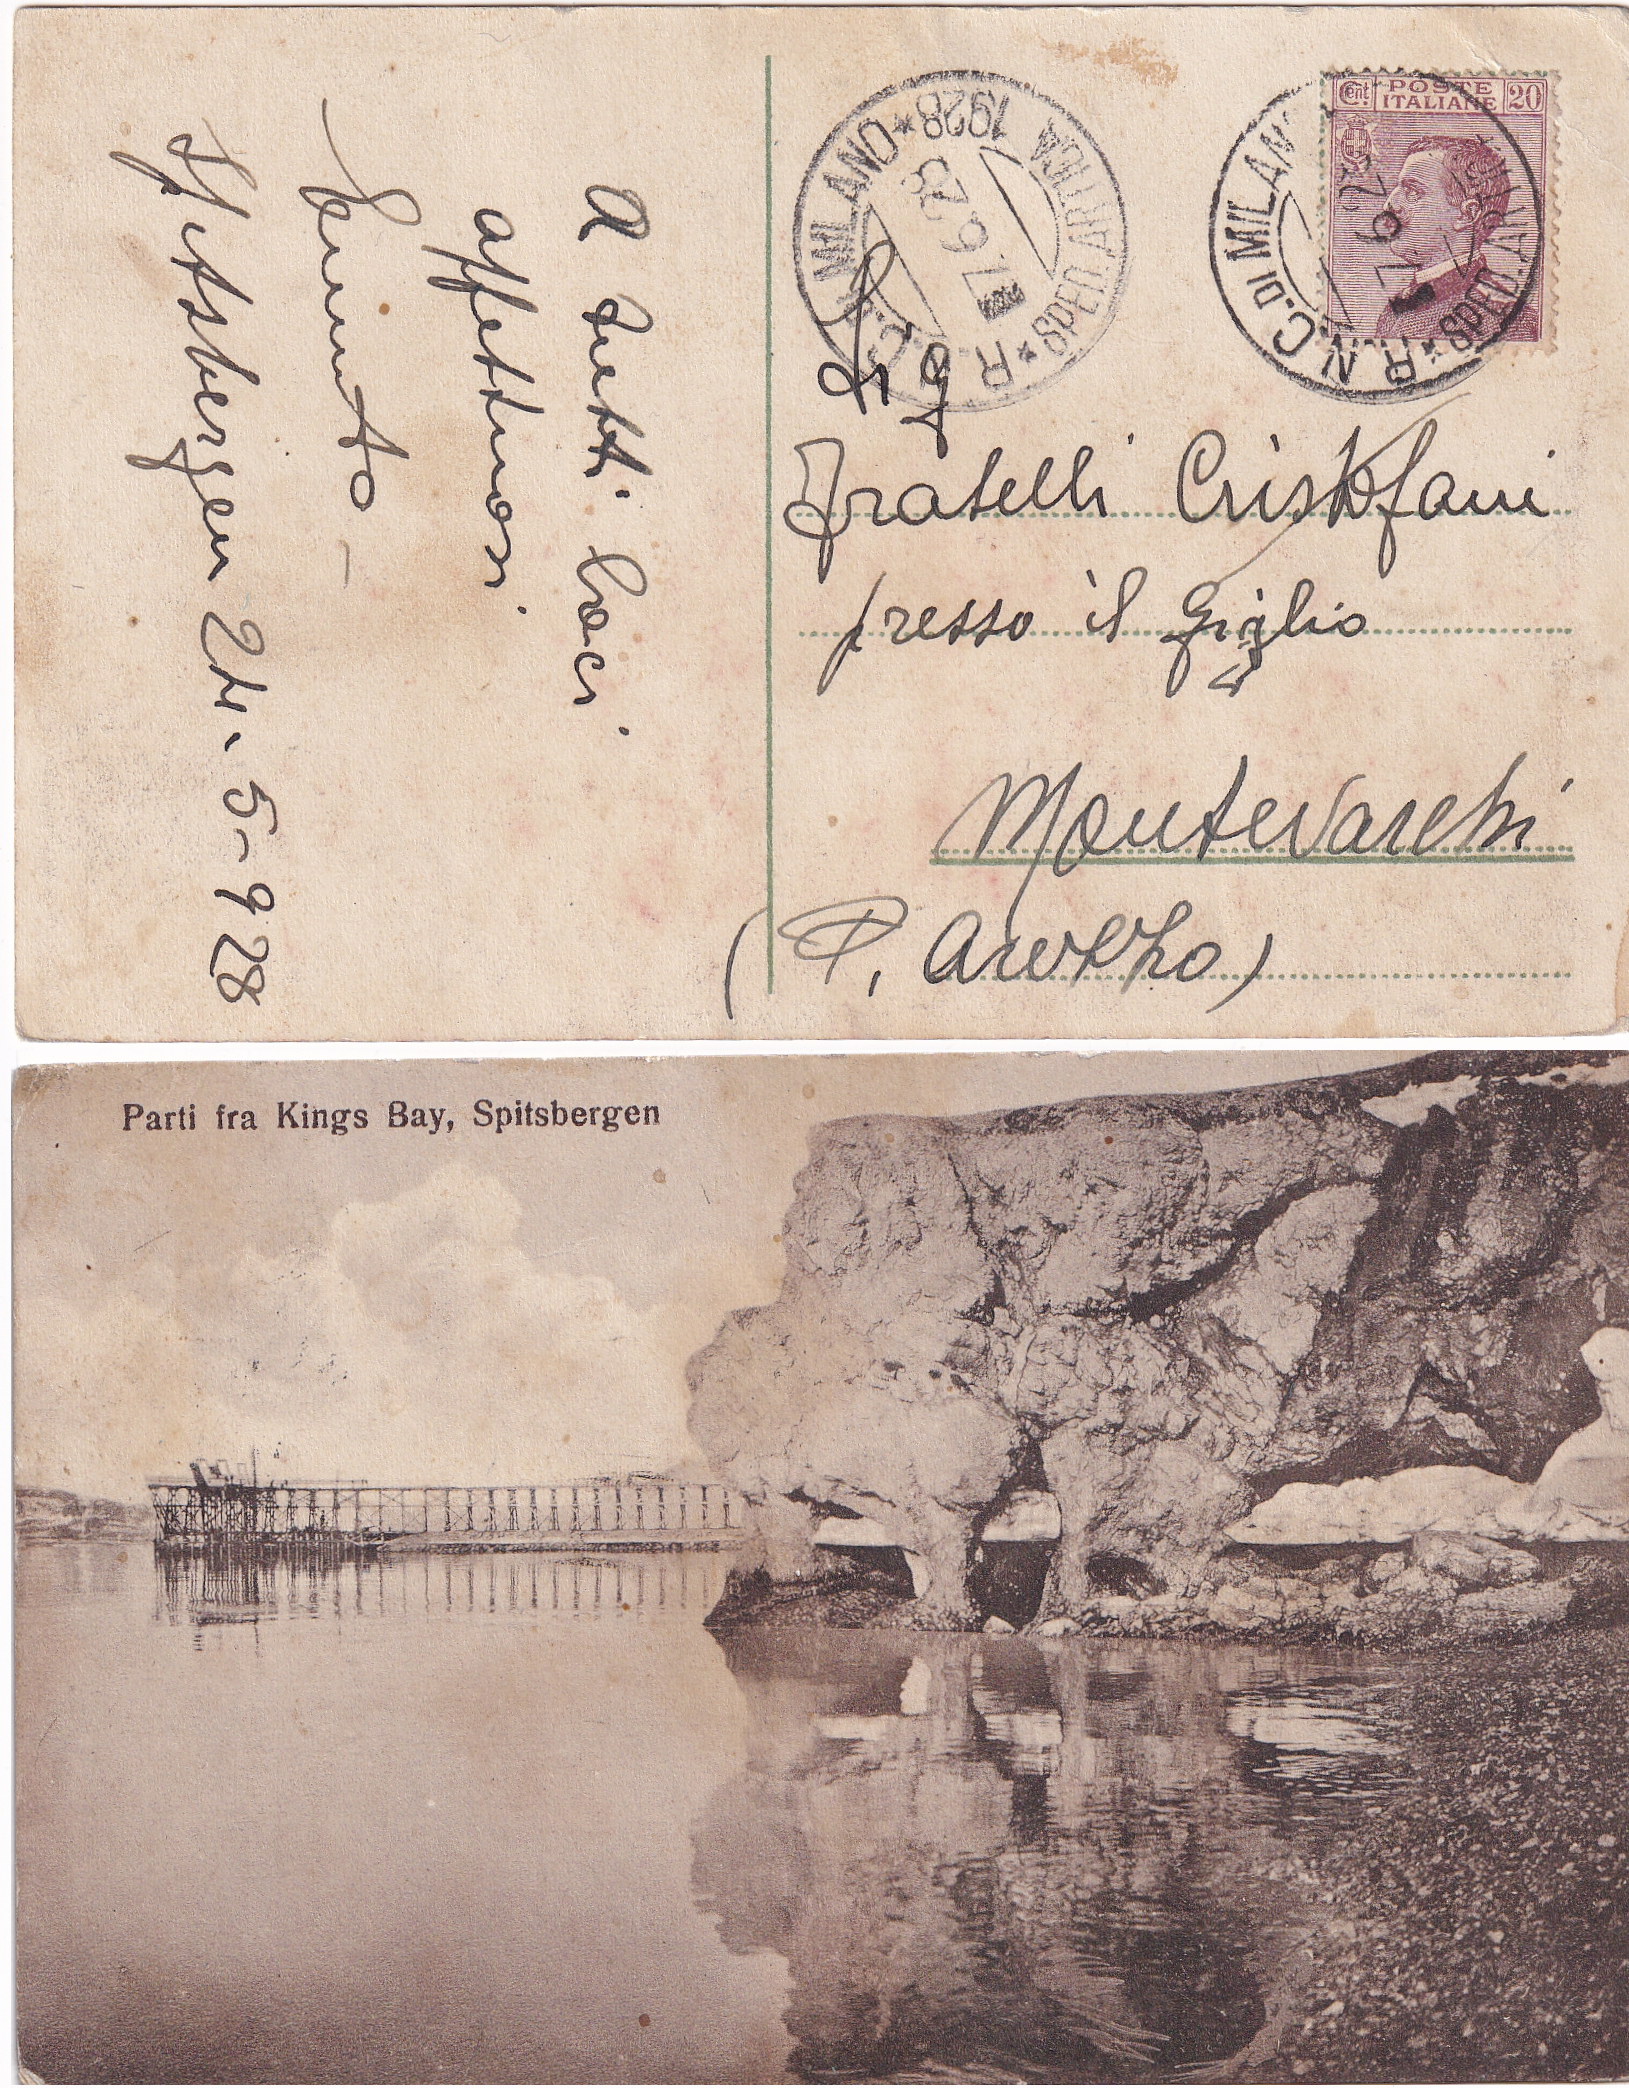 A tutti baci
affettuosi
Spitsbergen 24-5-928
R. N. C. DI MILANO
SPED. ARTICA
1928
7.6.28
Cent. POSTE ITALIANE 20
R. N. C. DI MILANO
SPED. ARTICA
7.6.28
Fratelli Cristofani
presso il Giglio
Montevarchi
(P. Arezzo)
Parti fra Kings Bay, Spitsbergen